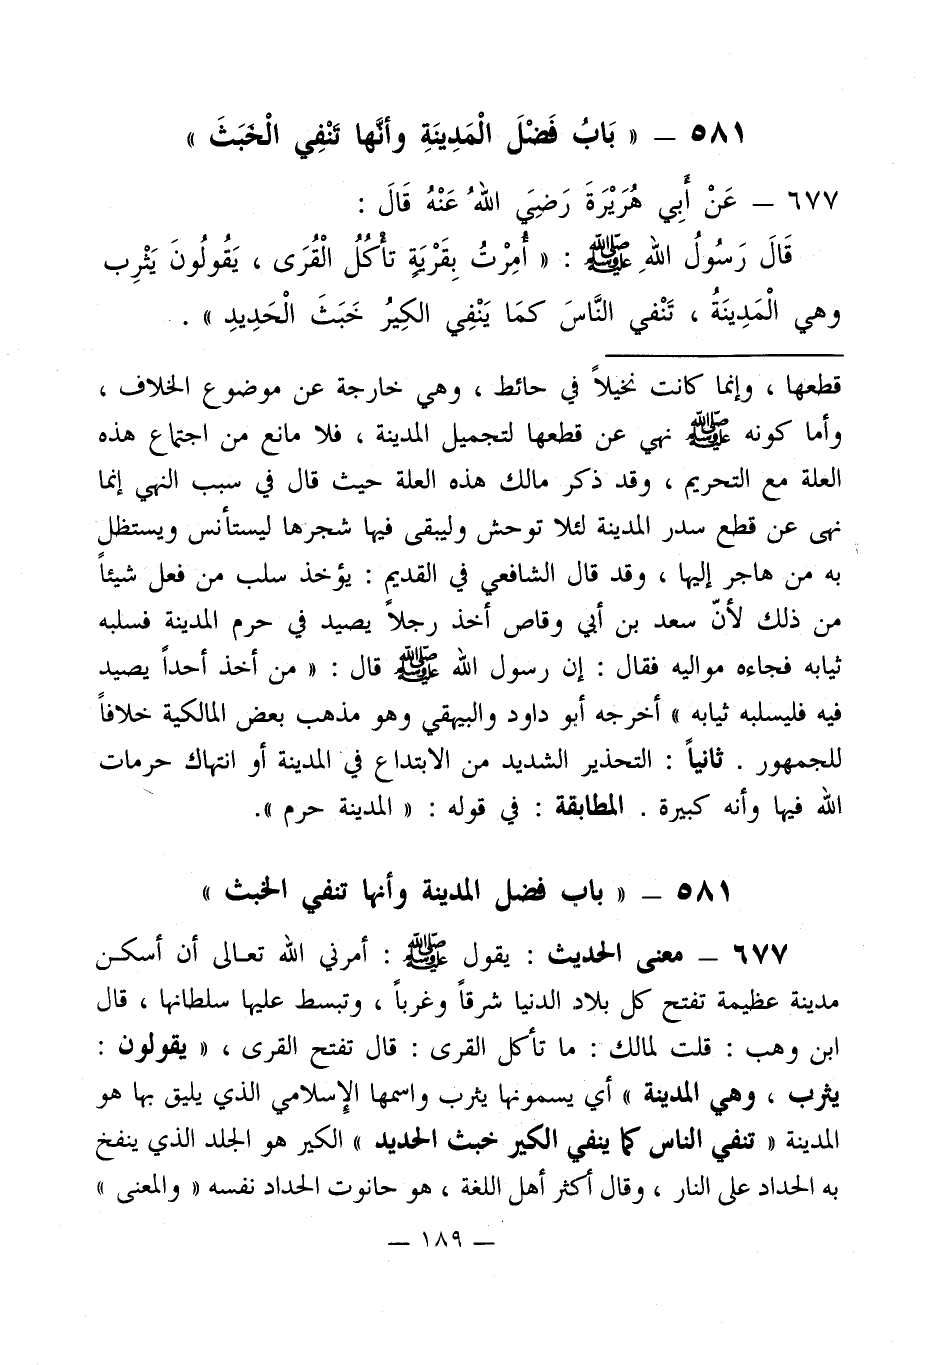 ٥٨١ – « بَابُ فَضْلَ الْمَدِينَةِ وأنَّها تَنْفِي الْخَبَثَ »
٦٧٧ – عَنْ أَبِي هُرَيْرَةَ رَضِيَ اللهُ عَنْهُ قَالَ :
قَالَ رَسُولُ اللهِ ﷺ : « أُمِرْتُ بِقَرْيَةٍ تأْكُلُ الْقُرَى ، يَقُولُونَ يَثْرِب
وهي الْمَدِينَةُ ، تَنْفي النَّاسَ كمَا يَنْفِي الكِيرُ خَبَثَ الْحَدِيدِ » .
قطعها ، وإنما كانت نخيلاً في حائط ، وهي خارجة عن موضوع الخلاف ،
وأما كونه ﷺ نهي عن قطعها لتجميل المدينة ، فلا مانع من اجتماع هذه
العلة مع التحريم ، وقد ذكر مالك هذه العلة حيث قال في سبب النهي إنما
نهى عن قطع سدر المدينة لئلا توحش وليبقى فيها شجرها ليستأنس ويستظل
به من هاجر إليها ، وقد قال الشافعي في القديم : يؤخذ سلب من فعل شيئاً
من ذلك لأنّ سعد بن أبي وقاص أخذ رجلاً يصيد في حرم المدينة فسلبه
ثيابه فجاءه مواليه فقال : إن رسول الله ﷺ قال : « من أخذ أحداً يصيد
فيه فليسلبه ثيابه » أخرجه أبو داود والبيهقي وهو مذهب بعض المالكية خلافاً
للجمهور . ثانياً : التحذير الشديد من الابتداع في المدينة أو انتهاك حرمات
الله فيها وأنه كبيرة . المطابقة : في قوله : « المدينة حرم ».
٥٨١ – « باب فضل المدينة وأنها تنفي الخبث »
٦٧٧ – معنى الحديث : يقول ﷺ : أمرني الله تعالى أن أسكن
مدينة عظيمة تفتح كل بلاد الدنيا شرقاً وغرباً ، وتبسط عليها سلطانها ، قال
ابن وهب : قلت لمالك : ما تأكل القرى : قال تفتح القرى ، « يقولون :
يثرب ، وهي المدينة » أي يسمونها يثرب واسمها الإسلامي الذي يليق بها هو
المدينة « تنفي الناس كما ينفي الكير خبث الحديد » الكير هو الجلد الذي ينفخ
به الحداد على النار ، وقال أكثر أهل اللغة ، هو حانوت الحداد نفسه « والمعنى »
– ١٨٩ –